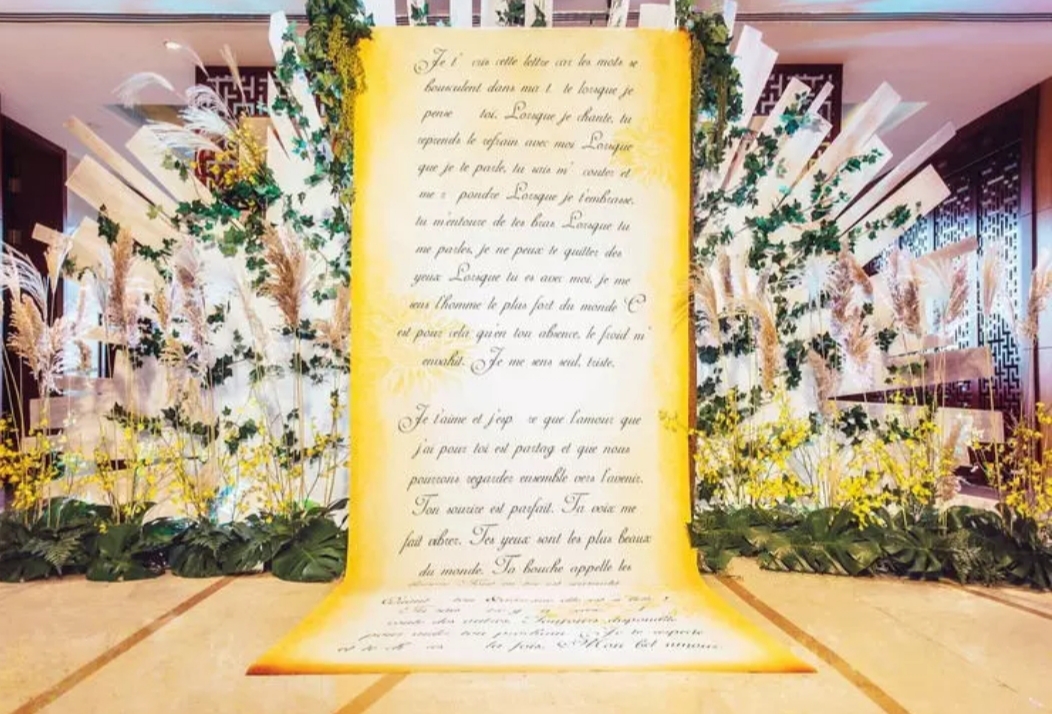 Je t' cris cette lettre car les mots se
bousculent dans ma t te lorsque je
pense toi. Lorsque je chante, tu
reprends le refrain avec moi Lorsque
que je te parle, tu sais m' couter et
me r pondre Lorsque je t'embrasse,
tu m'entoure de tes bras Lorsque tu
me parles, je ne peux te quitter des
yeux Lorsque tu es avec moi, je me
sens l'homme le plus fort du monde C
est pour cela qu'en ton absence, le froid m'
envahit. Je me sens seul, triste.
Je t'aime et j'esp re que l'amour que
j'ai pour toi est partag et que nous
pourrons regarder ensemble vers l'avenir.
Ton sourire est parfait. Ta voix me
fait vibrer. Tes yeux sont les plus beaux
du monde. Ta bouche appelle les
des autres. Toujours disponible
ton prochain. Je te respecte
la fois. Mon bel amour